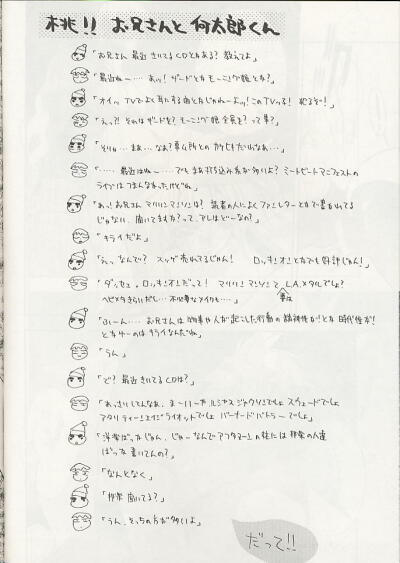 桃!! お兄さんと何太郎くん
「お兄さん 最近 きいてるCDとかある? 教えてよ」
「最近ねー…… あッ! ザードとか モーニング娘 とか?」
「オイッ TVでよく耳にする曲とかじゃねーよッ! このTVっ子! 犯るぞー!」
「えっ?! それは ザードを? モーニング娘 全員を? って事?」
「そりゃ… まぁ… なぁ?
「…… 最近はねー…… でも まあ打ち込み系が多いよ? ミートビートマニフェストの
ライブは つまんなかったけどね」
「あっ! お兄さん マリリンマンソンは? 読者の人によく ファンレターとかで書かれてる
じゃない、聞いてますか? って、アレはどーなの?」
「キライだよ」
「えっ なんで? スッゲ 売れてるじゃん! ロッキンオンとかでも 好評じゃん!」
「ダッセェ。ロッキンオンだって! マリリンマンソンて 要は L.A.メタルでしょ?
ヘビメタきらいだし… 不必要なメイクも…」
「ふーん…… お兄さんは 物事や人が起こした行動の 精神性が! とか 時代性が!
とかゆーのは キライなんだね」
「うん」
「で? 最近 きいてるCDは?」
「あっさりしてんなぁ、
スウェードでしょ
アタリティーンエイジライオットでしょ バーナードバトラーでしょ」
「洋楽ばっかじゃん、じゃー なんで アフタヌーンの柱には 邦楽の人達
ばっか 書いてんの?」
「なんとなく」
「邦楽 聞いてる?」
「うん、そっちの方が多いよ」
だって!!